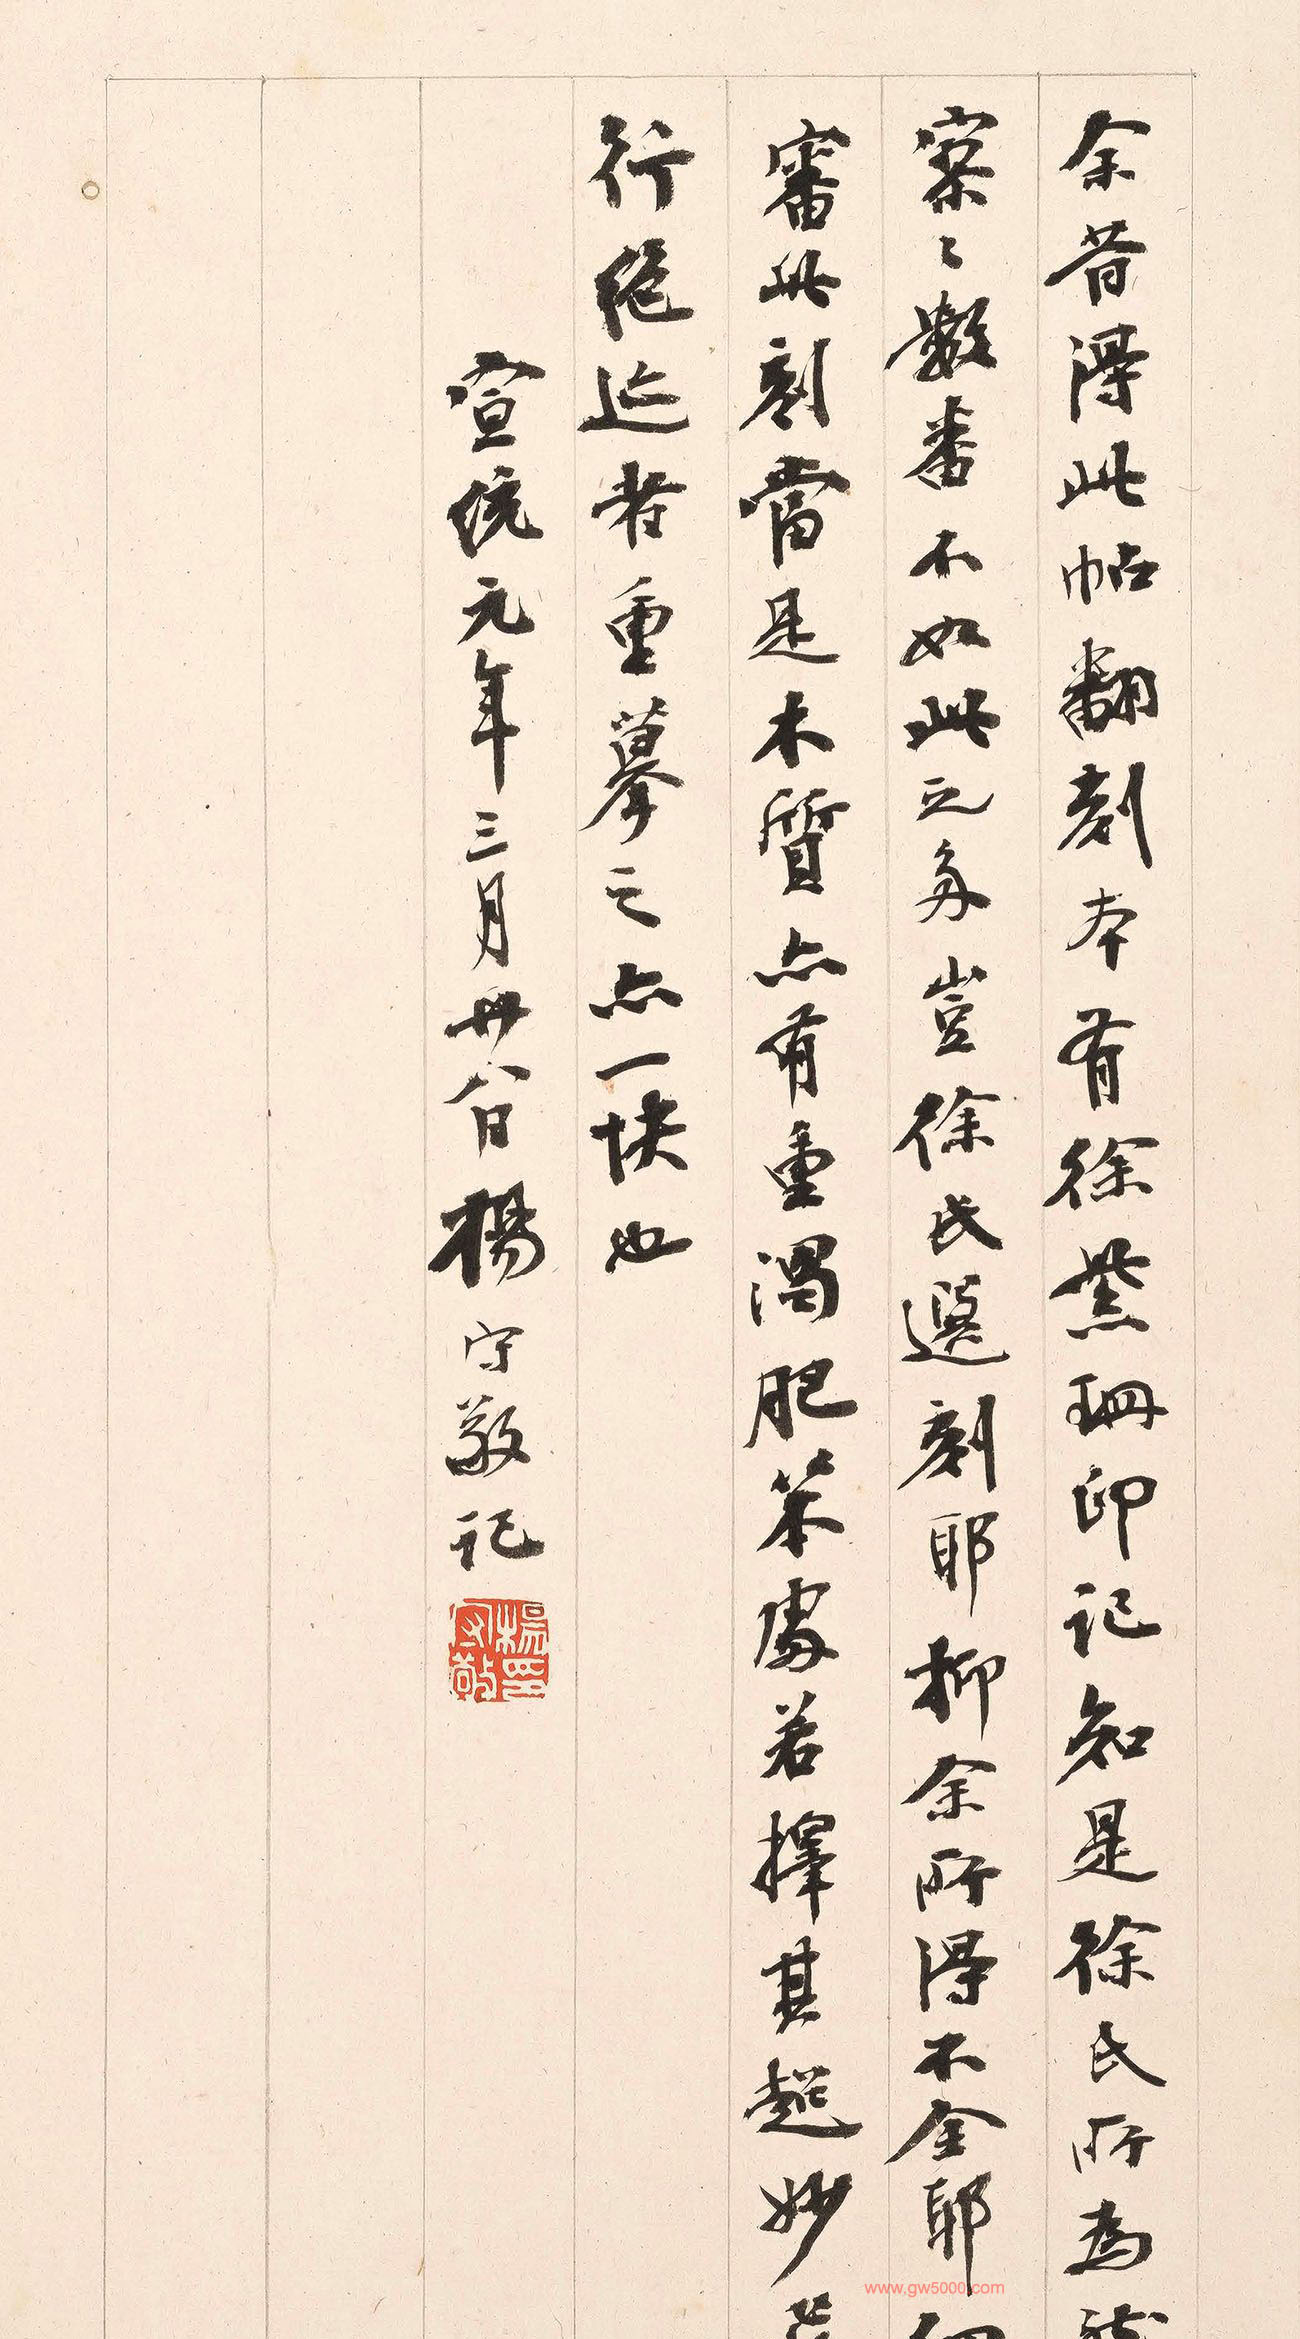 余昔得此帖翻刻本有徐紫珊印記知是徐氏所為
寥〻數番不如此之多豈徐氏選刻耶抑余所得不全耶
審此刻當是木質亦有重濁肥笨處若擇其超妙
行絕迹者重摹之亦一快也
宣統元年三月廿八日楊守敬記
楊守敬印
www.gw5000.com